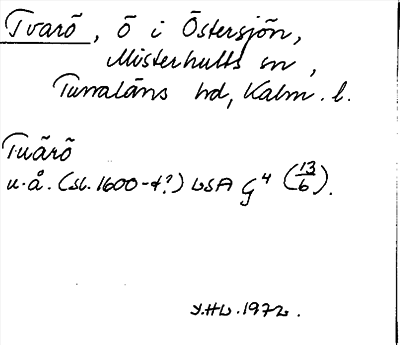 Tvarö, ö i Östersjön,
Misterhults sn,
Tunaläns hd, Kalm. l.
Tuärö
u.å. (sl. 1600-t?) LSA G 4 (13/6).
Y.HL. 1972.